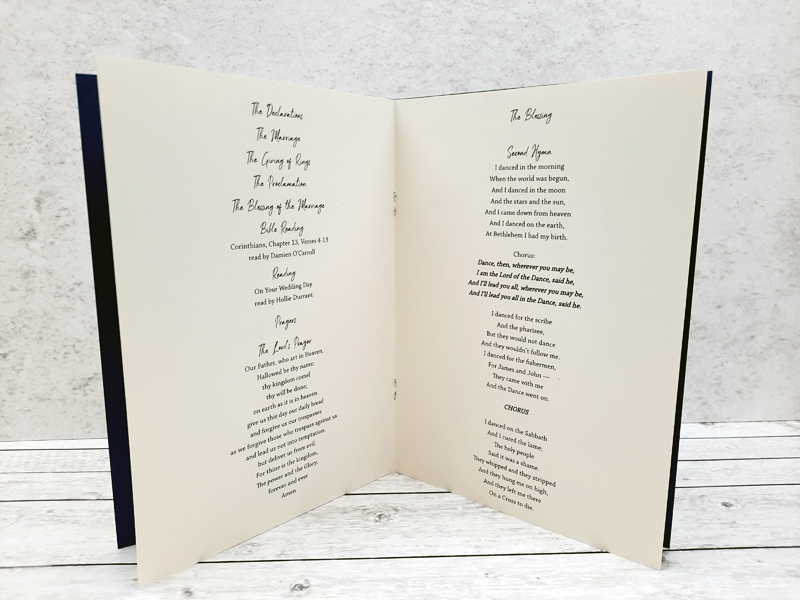 The Declarations
The Marriage
The Giving of Rings
The Proclamation
The Blessing of the Marriage
Bible Reading
Corinthians, Chapter 13, Verses 4-13
read by Damien O'Carroll
Reading
On Your Wedding Day
read by Hollie Durrant
Prayers
The Lord's Prayer
Our Father, who art in Heaven,
Hallowed be thy name;
thy kingdom come!
thy will be done;
on earth as it is in heaven.
give us this day our daily bread
and forgive us our trespasses
as we forgive those who trespass against us
and lead us not into temptation.
but deliver us from evil.
For thine is the kingdom,
The power and the Glory,
forever and ever
Amen
The Blessing
Second Hymn
I danced in the morning
When the world was begun,
And I danced in the moon
And the stars and the sun,
And I came down from heaven
And I danced on the earth,
At Bethlehem I had my birth.
Chorus:
Dance, then, wherever you may be,
I am the Lord of the Dance, said he,
And I'll lead you all, wherever you may be,
And I'll lead you all in the Dance, said he.
I danced for the scribe
And the pharisee,
But they would not dance
And they wouldn't follow me.
I danced for the fishermen,
For James and John —
They came with me
And the Dance went on.
CHORUS
I danced on the Sabbath
And I cured the lame;
The holy people
Said it was a shame.
They whipped and they stripped
And they hung me on high,
And they left me there
On a Cross to die.